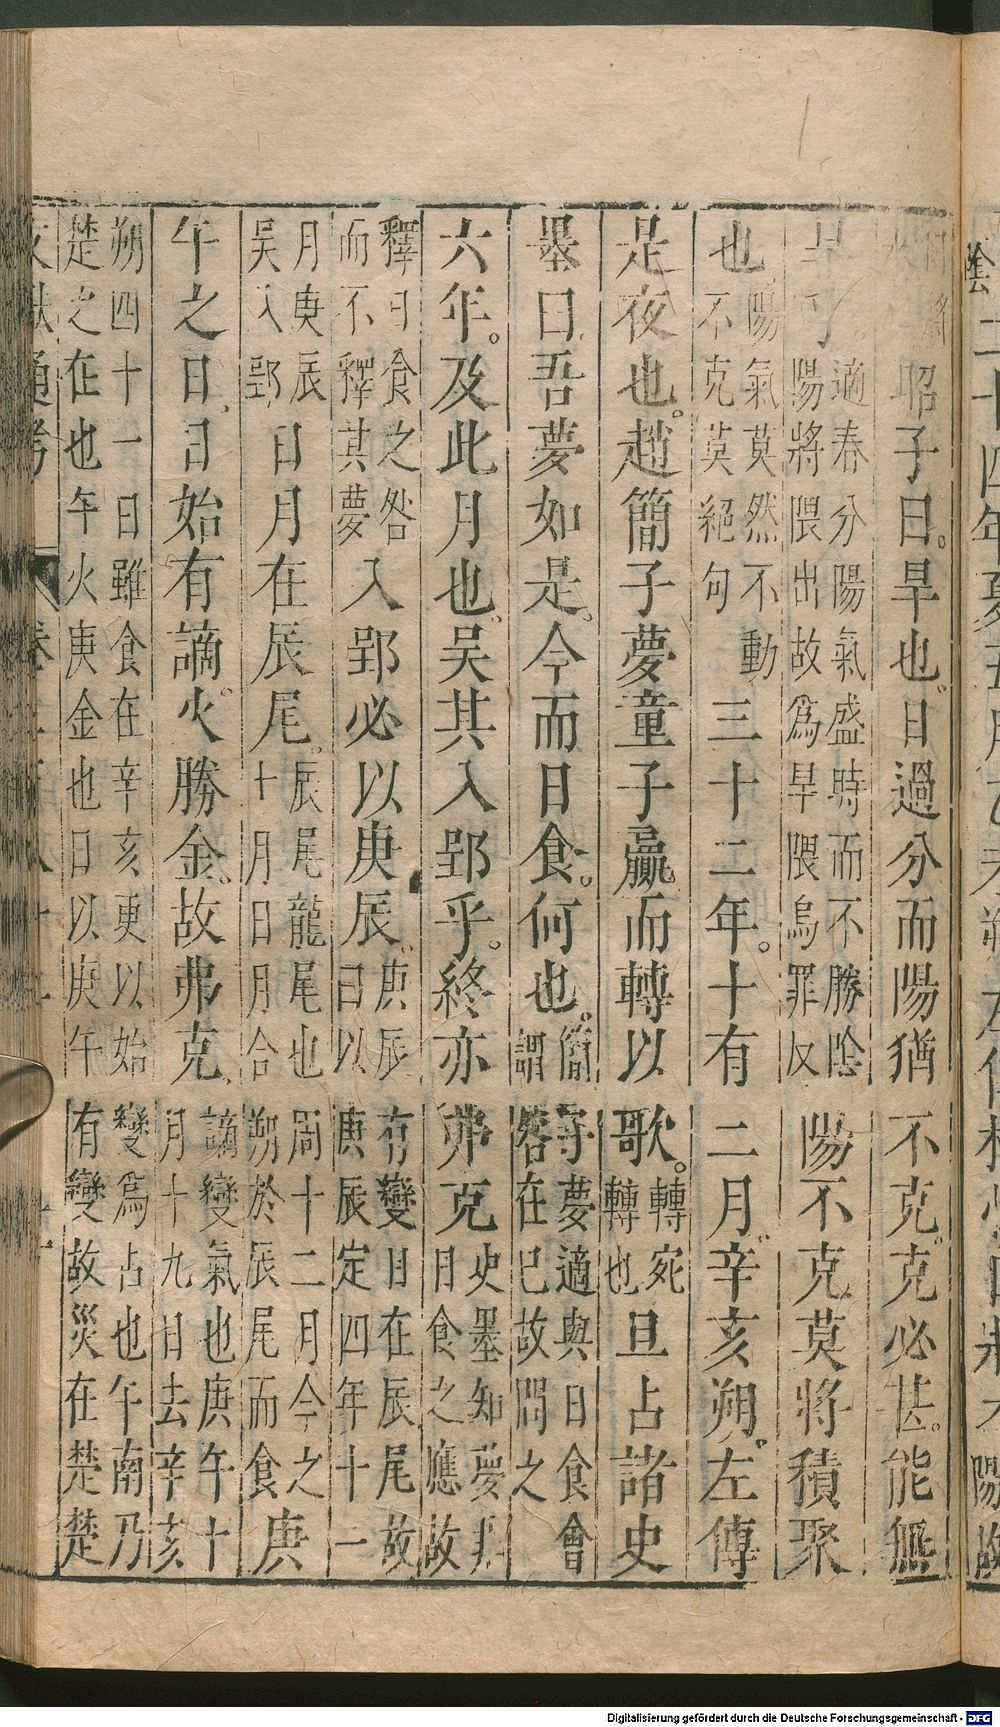 昭子曰。旱也。日過分而陽猶不克。克必甚。能無
旱乎適春分陽氣盛時而不勝陰
陽將隈出故爲旱隈烏罪反陽不克莫將積聚
也陽氣莫然不動
不克莫絕句三十二年。十有二月。辛亥朔。左傳
是夜也。趙簡子夢童子臝而轉以歌。轉宛
轉也且占諸史
墨曰。吾夢如是。今而日食。何也。簡子夢適與日食會
謂咎在已故問之
六年。及此月也。吳其入郢乎。終亦弗克史墨知夢非
日食之應故
釋日食之咎
而不釋其夢入郢必以庚辰。庚辰有變日在辰尾故
曰以庚辰定四年十一
月庚辰
吳入郢日月在辰尾。辰尾龍尾也周十二月今之
十月日月合朔於辰尾而食庚
午之日。日始有謫。火勝金。故弗克。謫變氣也庚午十
月十九日去辛亥
朔四十一日雖食在辛亥更以始變爲占也午南乃
楚之在也午火庚金也日以庚午有變故災在楚楚
Digitalisierung gefördert durch die Deutsche Forschungsgemeinschaft - DFG